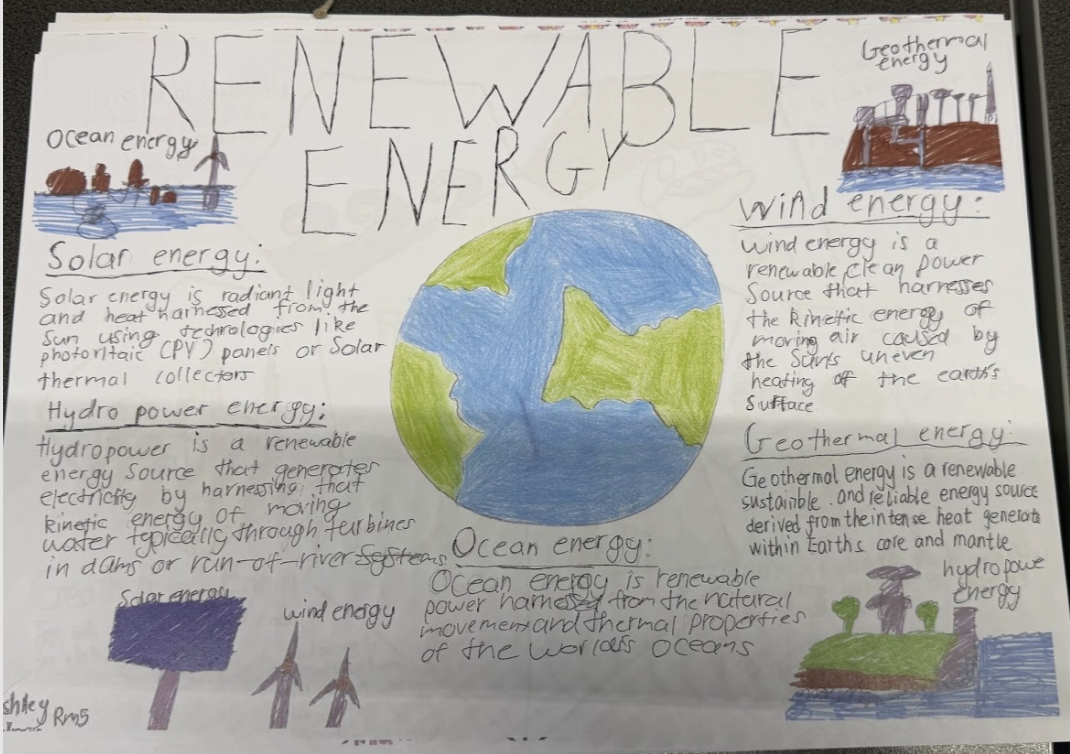 RENEWABLE
ENERGY
Geothermal
energy
Ocean energy
Solar energy:
Solar energy is radiant light
and heat harnessed from the
sun using technologies like
photoritaic (PV) panels or Solar
thermal collectors
Hydro power energy:
Hydropower is a renewable
energy source that generates
electricity by harnessing that
kinetic energy of moving
water typically through turbines
in dams or run-of-river systems.
Wind energy:
Wind energy is a
renewable clean power
Source that harnesses
the kinetic energy of
moving air caused by
the Sun's uneven
heating of the earth's
Surface
Geothermal energy:
Geothermal energy is a renewable
sustainible . and reliable energy source
derived from the intense heat generate
within Earths core and mantle
Ocean energy:
Ocean energy is renewable
power harnessed from the natural
movement and thermal properties
of the oceans
Solar energy
wind energy
hydropowe
energy
shley
Rm5